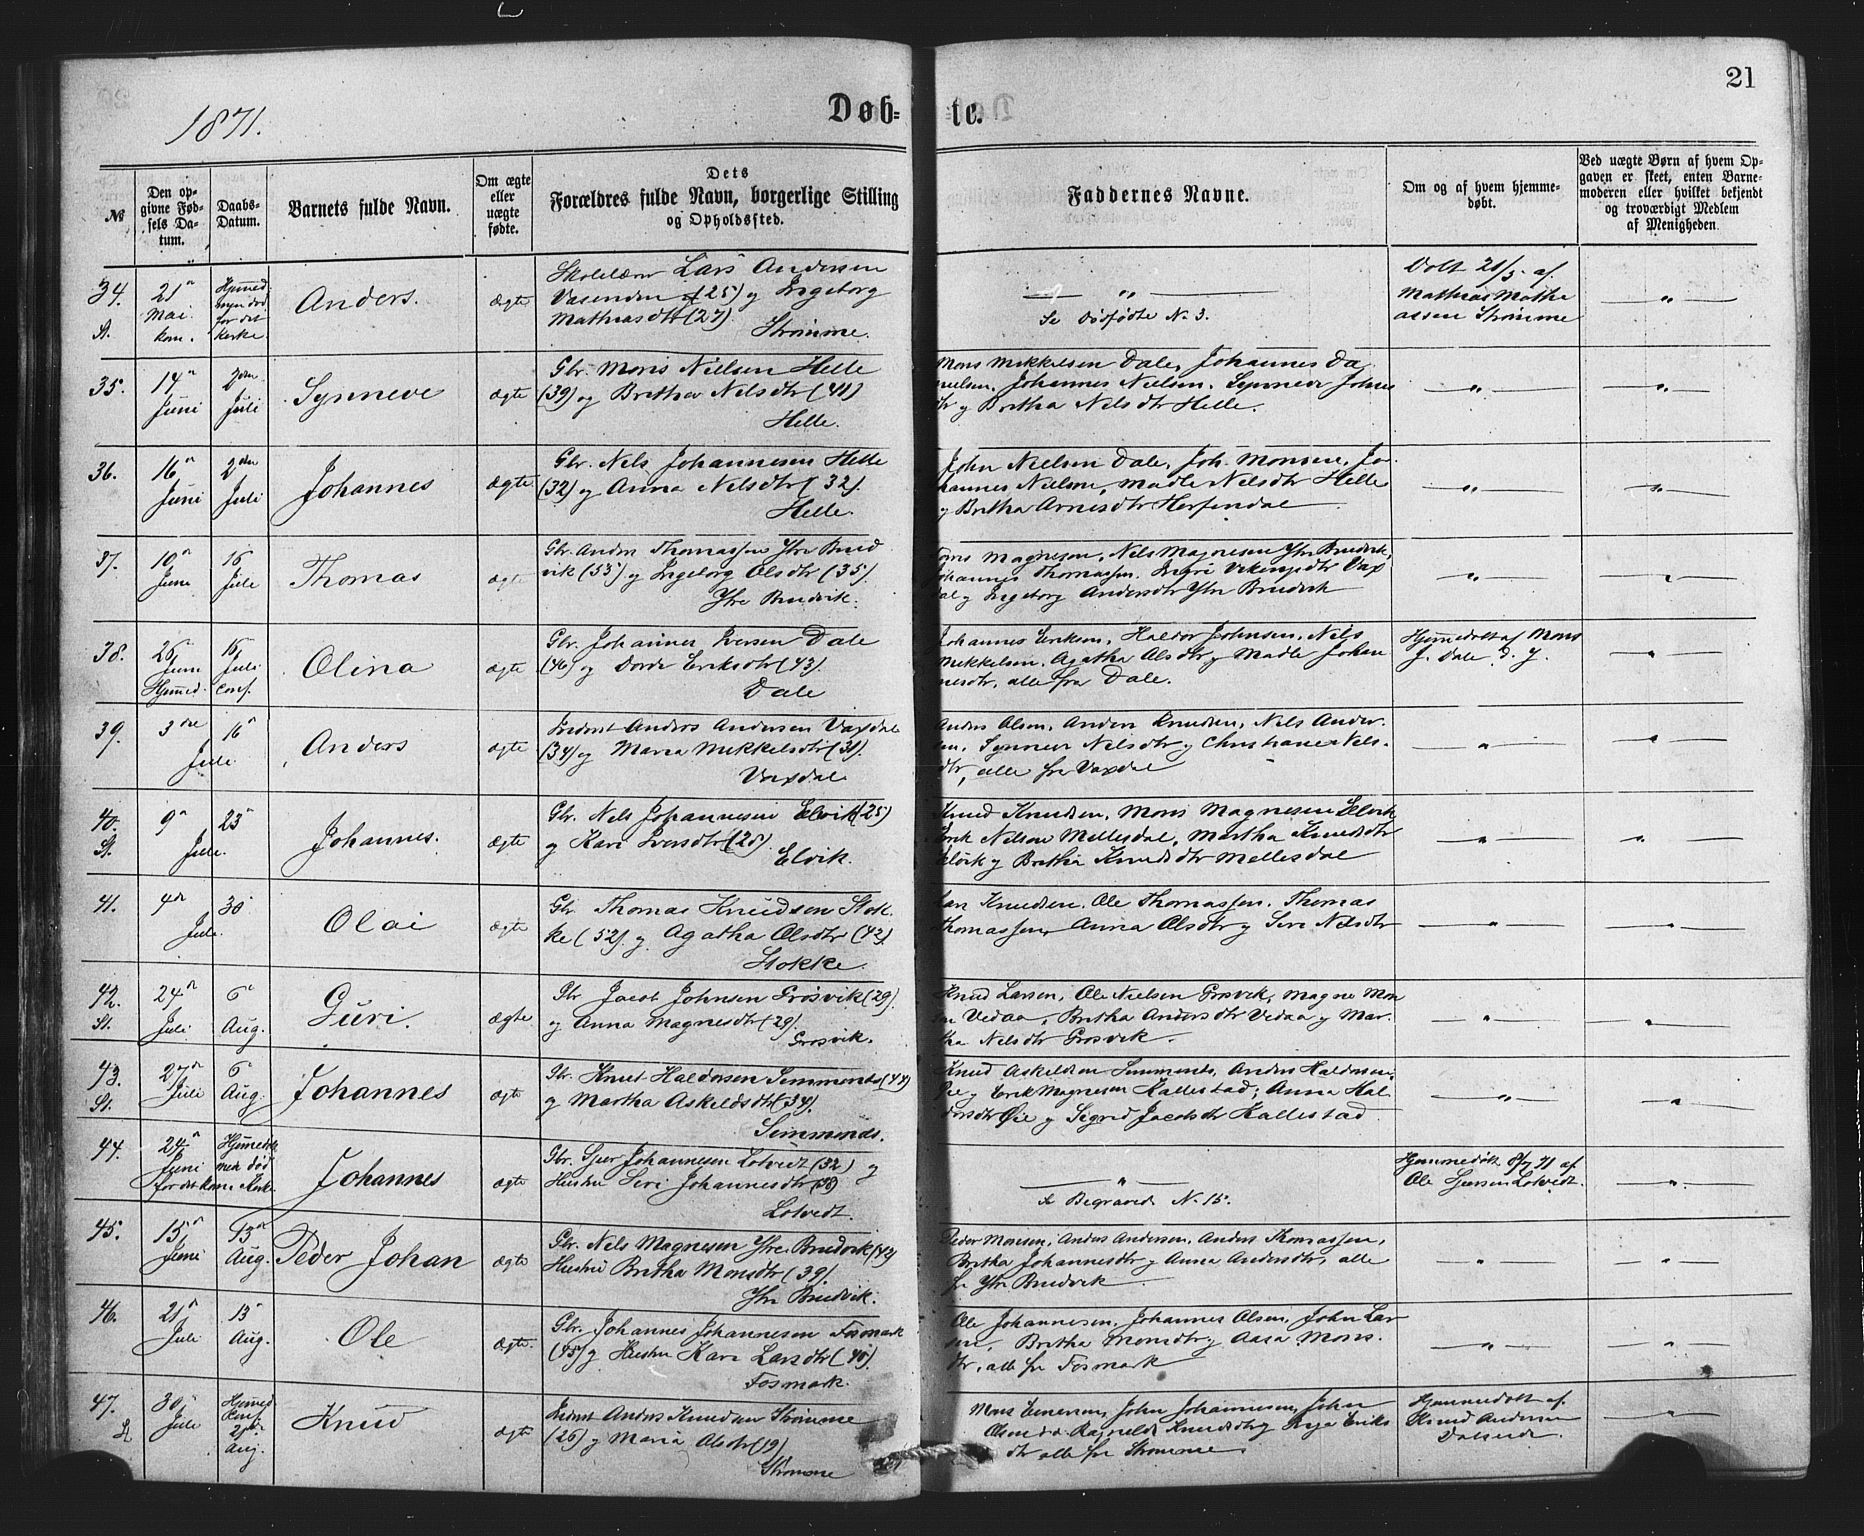 21
1871.
Døb-
te.
№
Den op-
givne Fød-
sels Da-
tum.
Daabs-
Datum.
Barnets fulde Navn.
Om ægte
eller
uægte
fødte.
Dets
Forældres fulde Navn, borgerlige Stilling
og Opholdssted.
Faddernes Navne.
Om og af hvem hjemme-
døbt.
Ved uægte Børn af hvem Op-
gaven er skeet, enten Barne-
moderen eller hvilket bekjendt
og troværdigt Medlem
af Menigheden.
34.
St.
21
Mai
kom.
Hjemmed
men død
før det
kirke.
Anders.
ægte
Skolelærer Lars Andersen
Vasenden (25) og Ingeborg
Mathiasdtr (27)
Strømme.
— „ —
Se Dødfødte N. 3.
Døbt 21/5 af
Mathias Mathi
assen Strømme
— „ —
35.
14
Juni
2den
Juli
Synneve
ægte
Gbr. Mons Nielsen Helle
(39) og Britha Nilsdtr (41)
Helle.
Mons Mikkelsen Dale, Johannes Da
nielsen, Johannes Nielsen, Synneve Johns
dtr og Britha Nilsdtr Helle.
— „ —
— „ —
36.
16
Juni
2den
Juli
Johannes
ægte
Gbr. Nils Johannesen Helle
(32) og Anna Nilsdtr (32).
Helle.
John Nielsen Dale, Joh. Monsen, Jo-
hannes Nielsen, Madle Nilsdtr Helle
og Britha Arnesdtr Herfindal
— „ —
— „ —
37.
10
Juni
16
Juli
Thomas
ægte
Gbr. Anders Thomassen Ytre Brud
vik (53) og Ingeborg Olsdtr (35).
Ytre Brudvik.
Mons Magnesen, Nils Magnesen Ytre Brudvik,
Johannes Thomassen, Ingri Vikingsdtr Vax
dal og Ingeborg Andersdtr Ytre Brudvik
— „ —
— „ —
38.
26
Juni
Hjemmed.
16
Juli
conf.
Olina
ægte
Gbr. Johannes Iversen Dale
(46) og Dorde Eriksdtr (43).
Dale
Johannes Eriksen, Haldor Johnsen, Nils
Mikkelsen, Agatha Olsdtr og Madle Johan
nesdtr, alle fra Dale.
Hjemmedøbt af Mons
J. Dale d. y.
— „ —
39.
3die
Juli
16
Anders
ægte
Inderst Anders Andersen Vaxdal
(34) og Maria Mikkelsdtr (31).
Vaxdal
Anders Olsen, Anders Knudsen, Nils Ander-
sen, Synneve Nilsdtr og Christiane Nils-
dtr, alle fra Vaxdal
— „ —
— „ —
40.
St.
9
Juli.
23
Johannes.
ægte
Gbr. Nils Johannesen Elvik (25)
og Kari Iversdtr (25).
Elvik.
Knud Knudsen, Mons Magnesen Elvik
Erik Nilsen Mellesdal, Martha Knudsdtr
Elvik og Britha Knudsdtr Mellesdal
— „ —
— „ —
41.
4de
Juli.
30
Olai
ægte
Gbr Thomas Knudsen Stok-
ke (52) og Agatha Olsdtr (42)
Stokke.
Lars Knudsen, Ole Thomassen, Thomas
Thomassen, Anna Olsdtr og Siri Nilsdtr
— „ —
— „ —
42.
St.
24
Juli
6
Aug.
Guri.
ægte
Gbr Jacob Johnsen Grøsvik (29).
og Anna Magnesdtr (29).
Grøsvik.
Knud Larsen, Ole Nielsen Grøsvik, Magne Mon
sen Vedaa, Britha Andersdtr Vedaa og Mar-
tha Nilsdtr Grøsvik.
— „ —
— „ —
43.
St.
27de
Juli
6
Aug.
Johannes
ægte
Gbr. Knut Haldorsen Simmenes (44)
og Martha Askeldsdtr (34).
Simmenes.
Knud Askeldsen Simmenes, Anders Haldorsen
Øie og Erik Magnesen Hallestad, Anna Hal-
dorsdtr Øie og Sigrid Jacobsdtr Hallestad.
— „ —
— „ —
44.
24
Juni
før det kom i Kirke
Hjemmedøbt
men død
Johannes
ægte
Gbr. Sjur Johannesen Lotvedt (32) og
Hustru Siri Johannesdtr (38)
Lotvedt.
— „ —
se Begravede N. 15.
Hjemmedøbt 8/7 71 af
Ole Sjursen Lotvedt.
— „ —
45.
15
Juni
13
Aug.
Peder Johan
ægte
Gbr. Nils Magnesen Ytre Brudvik (42)
Hustru Britha Monsdtr (39).
Ytre Brudvik.
Peder Monsen, Anders Andersen, Anders Thomassen,
Britha Johannesdtr og Anna Andersdtr, alle
fr Ytre Brudvik
— „ —
— „ —
46.
21
Juli
13
Aug.
Ole
ægte.
Gbr. Johannes Johannesen Fosmark
(45) og Hustru Kari Larsdtr (40).
Fosmark.
Ole Johannesen, Johannes Olsen, John Lar
sen, Britha Monsdtr og Aasa Mons-
dtr, alle fra Fosmark
— „ —
— „ —
47.
St
30
Juli
Hjemmed
Conf.
Aug.
Knud
ægte
Inderst Anders Knudsen Strømme
(26) og Maria Olsdtr (19)
Strømme
Mons Einersen, John Johannesen, John
Olsen, Ragnilde Knudsdtr og Eriks
dtr alle fra Strømme
Hjemmedøbt af
Knud Andersen
— „ —